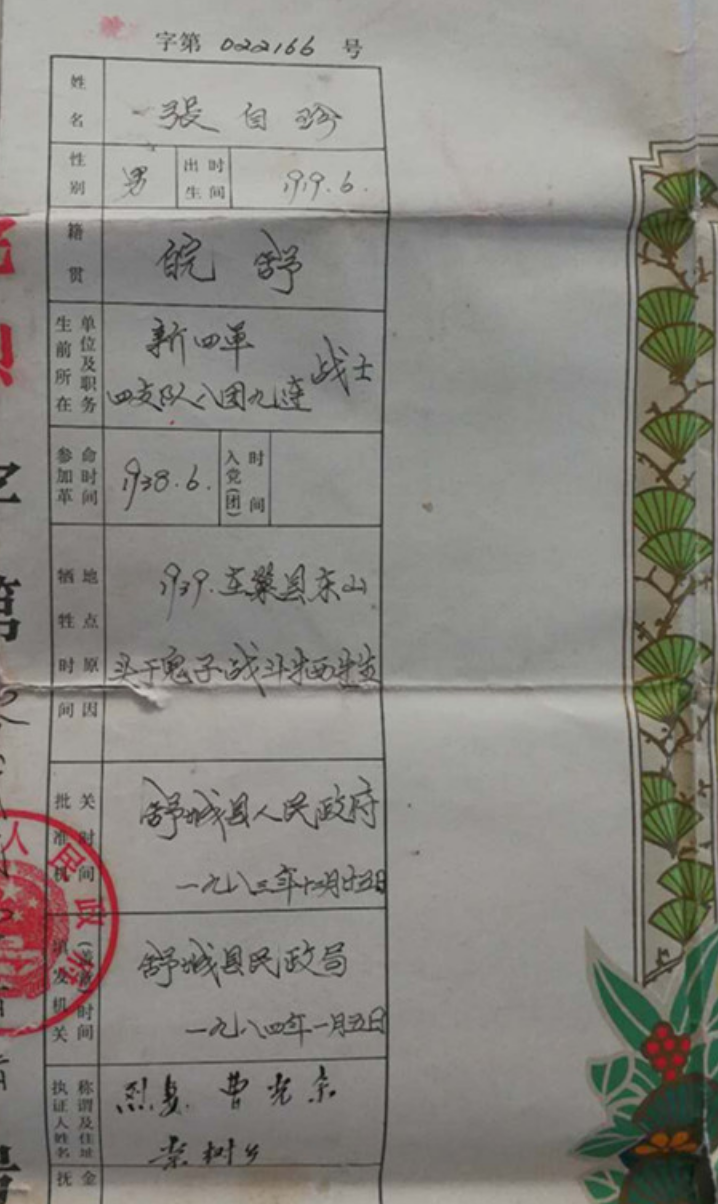 字第 022166 号
姓名
張自珍
性别
男
出生时间
1919.6.
籍贯
皖 舒
生前所在单位及职务
新四军
四支队八团九连
战士
参加革命时间
1938.6.
入党(团)时间
牺牲时间地点原因
1939.在巢县东山
头于鬼子战斗牺牲
批准机关时间
舒城县人民政府
一九八三年十二月廿五日
填发机关(盖章)时间
舒城县民政局
一九八四年一月五日
执证人姓名称谓及住址
烈 曹
树乡
抚 金
人民政